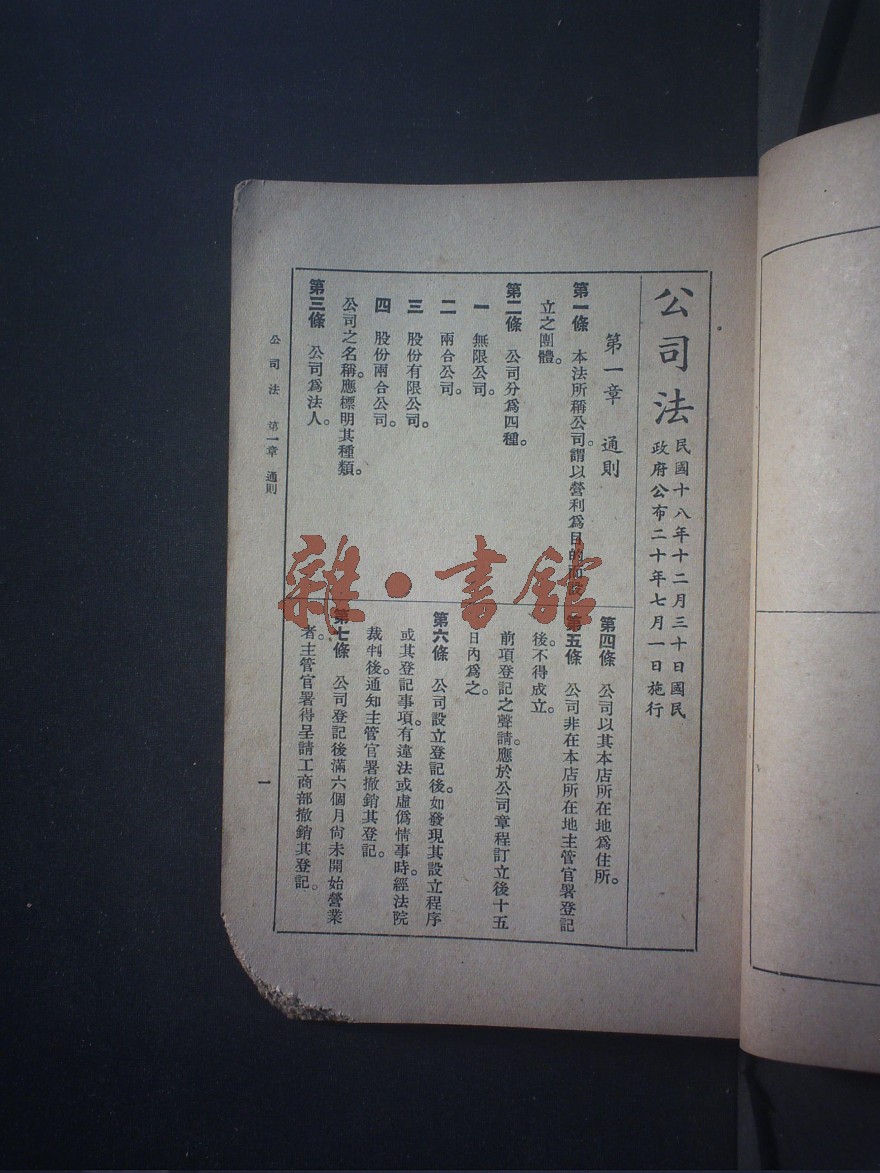 公司法
民國十八年十二月三十日國民
政府公布二十年七月一日施行
第一章 通則
第一條 本法所稱公司。謂以營利爲目的而設
立之團體。
第二條 公司分爲四種。
一 無限公司。
二 兩合公司。
三 股份有限公司。
四 股份兩合公司。
公司之名稱。應標明其種類。
第三條 公司爲法人。
第四條 公司以其本店所在地爲住所。
第五條 公司非在本店所在地主管官署登記
後。不得成立。
前項登記之聲請。應於公司章程訂立後十五
日內爲之。
第六條 公司設立登記後。如發現其設立程序
或其登記事項。有違法或虛僞情事時。經法院
裁判後。通知主管官署撤銷其登記。
第七條 公司登記後滿六個月尙未開始營業
者。主管官署得呈請工商部撤銷其登記。
公司法 第一章 通則
一
雜·書館